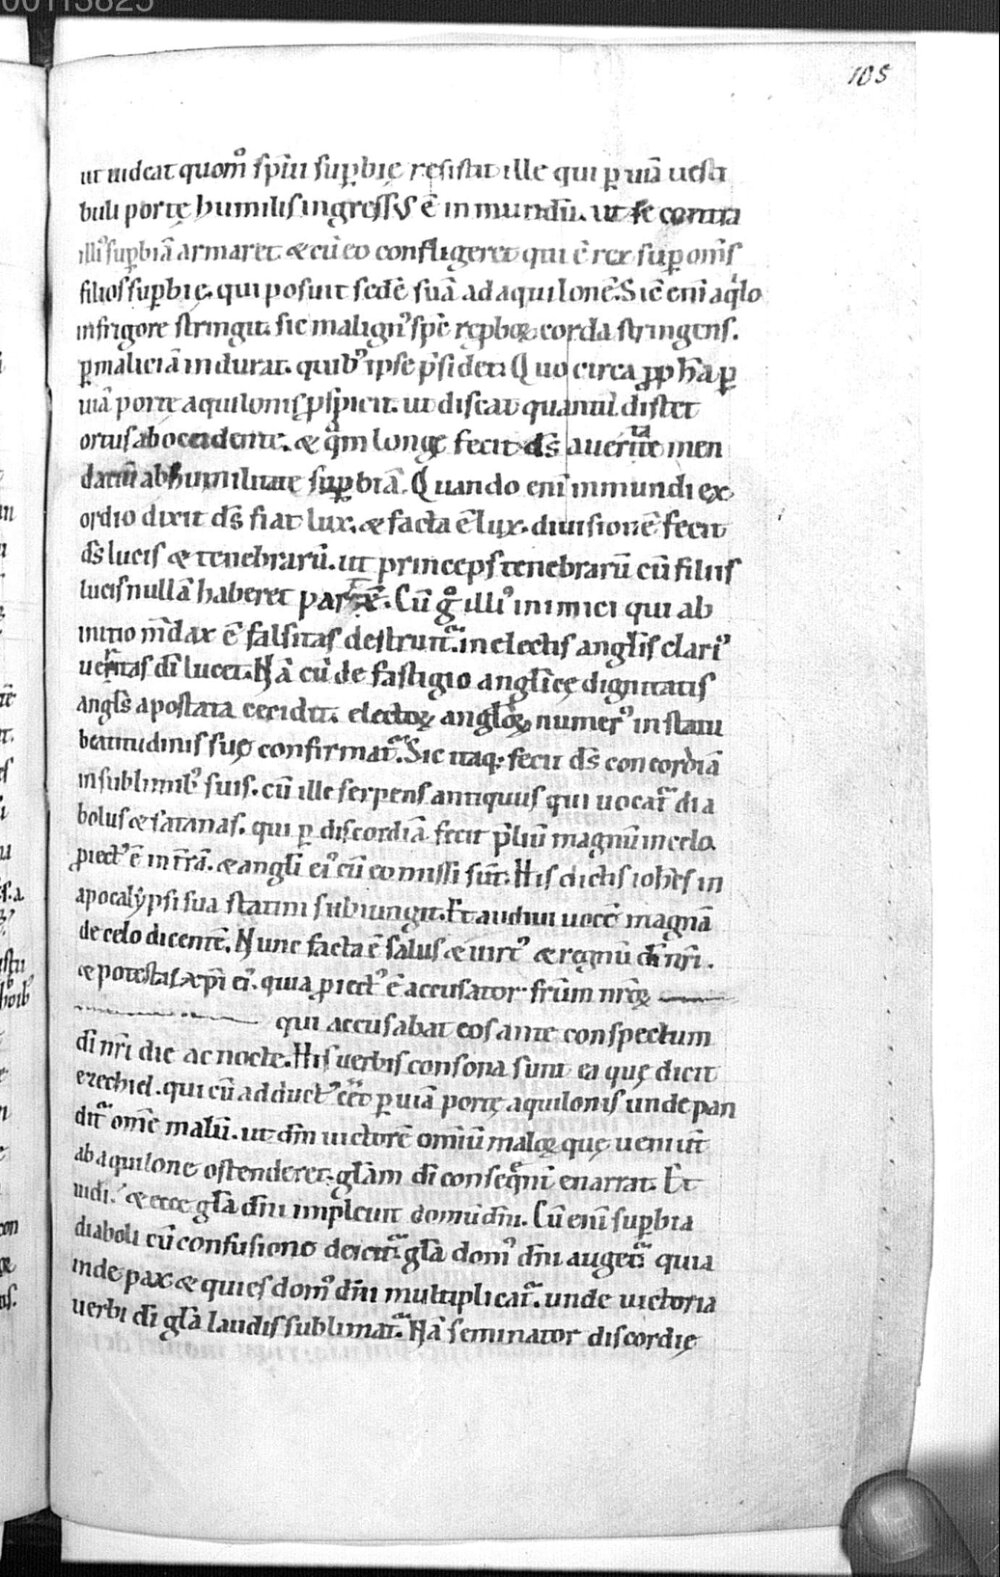 00113825
105
ut uideat quom̊ sp̄m suꝑbię resistat ille qui ꝑ uiā uesti
buli portę humilis ingressus ē in mundū. ut se contra
illiꝰ suꝑbiā armaret. & cū eo confligeret qui ē rex suꝑ om̄s
filios suꝑbię. qui posuit sedē suā ad aquilonē. Sic eni aq̇lo
in frigore stringit. sic malignꝰ sp̄c reproboꝝ corda stringens.
ꝑ maliciā indurat. quibꝰ ipse p̄sidet. Quo circa ꝓph̄a ꝑ
uiā portę aquilonis ꝓspicit. ut discat quantū distet
ortus ab occidente. & q̄m longe fecit ds̄ a ueritate men
daciū ab humilitate suꝑbiā. Quando eni in mundi ex
ordio dixit ds̄ fiat lux. & facta ē lux. diuisionē fecit
ds̄ lucis & tenebrarū. ut princeps tenebrarū cū filiis
lucis nullā haberet partē. Cū gͦ illiꝰ inimici qui ab
initio m̄dax ē falsitas destruit᷑. in electis angl̄is clariꝰ
ueritas dī lucet. Nā cū de fastigio anglicę dignitatis
angl̄s apostata cecidit. electoꝝ angl̄oꝝ numerꝰ in statu
beatitudinis suę confirmat᷑. Sic itaq; fecit ds̄ concordiā
in sublimibꝰ suis. cū ille serpens antiquus qui uocat᷑ dia
bolus & satanas. qui ꝑ discordiā fecit p̄liū magnū in celo.
ꝓiectꝰ ē in t̄rā. & angl̄i eiꝰ cū eo missi sūt. His dictis ioh̄es in
apocalypsi sua statim subiungit. Et audiui uocē magnā
de celo dicentē. Nunc facta ē salus & uirtꝰ & regnū dī nr̄i.
& potestas xp̄i eiꝰ. quia ꝓiectꝰ ē accusator fr̄um nr̄oꝝ
qui accusabat eos ante conspectum
dī nr̄i die ac nocte. His uerbis consona sunt ea quę dicit
ezechiel. qui cū adductꝰ eēt ꝑ uiā portę aquilonis unde pan
dit᷑ om̄e malū. ut dn̄m uictorē omniū maloꝝ quę ueniūt
ab aquilone ostenderet. gl̄am dī consequent᷑ enarrat. Et
uidi. & ecce gl̄a dn̄i impleuit domū dn̄i. Cū eni suꝑbia
diaboli cū confusione deicit᷑. gl̄a domꝰ dn̄i auget᷑. quia
inde pax & quies domꝰ dn̄i multiplicat᷑. unde uictoria
uerbi dī gl̄a laudis sublimat᷑. Nā seminator discordię